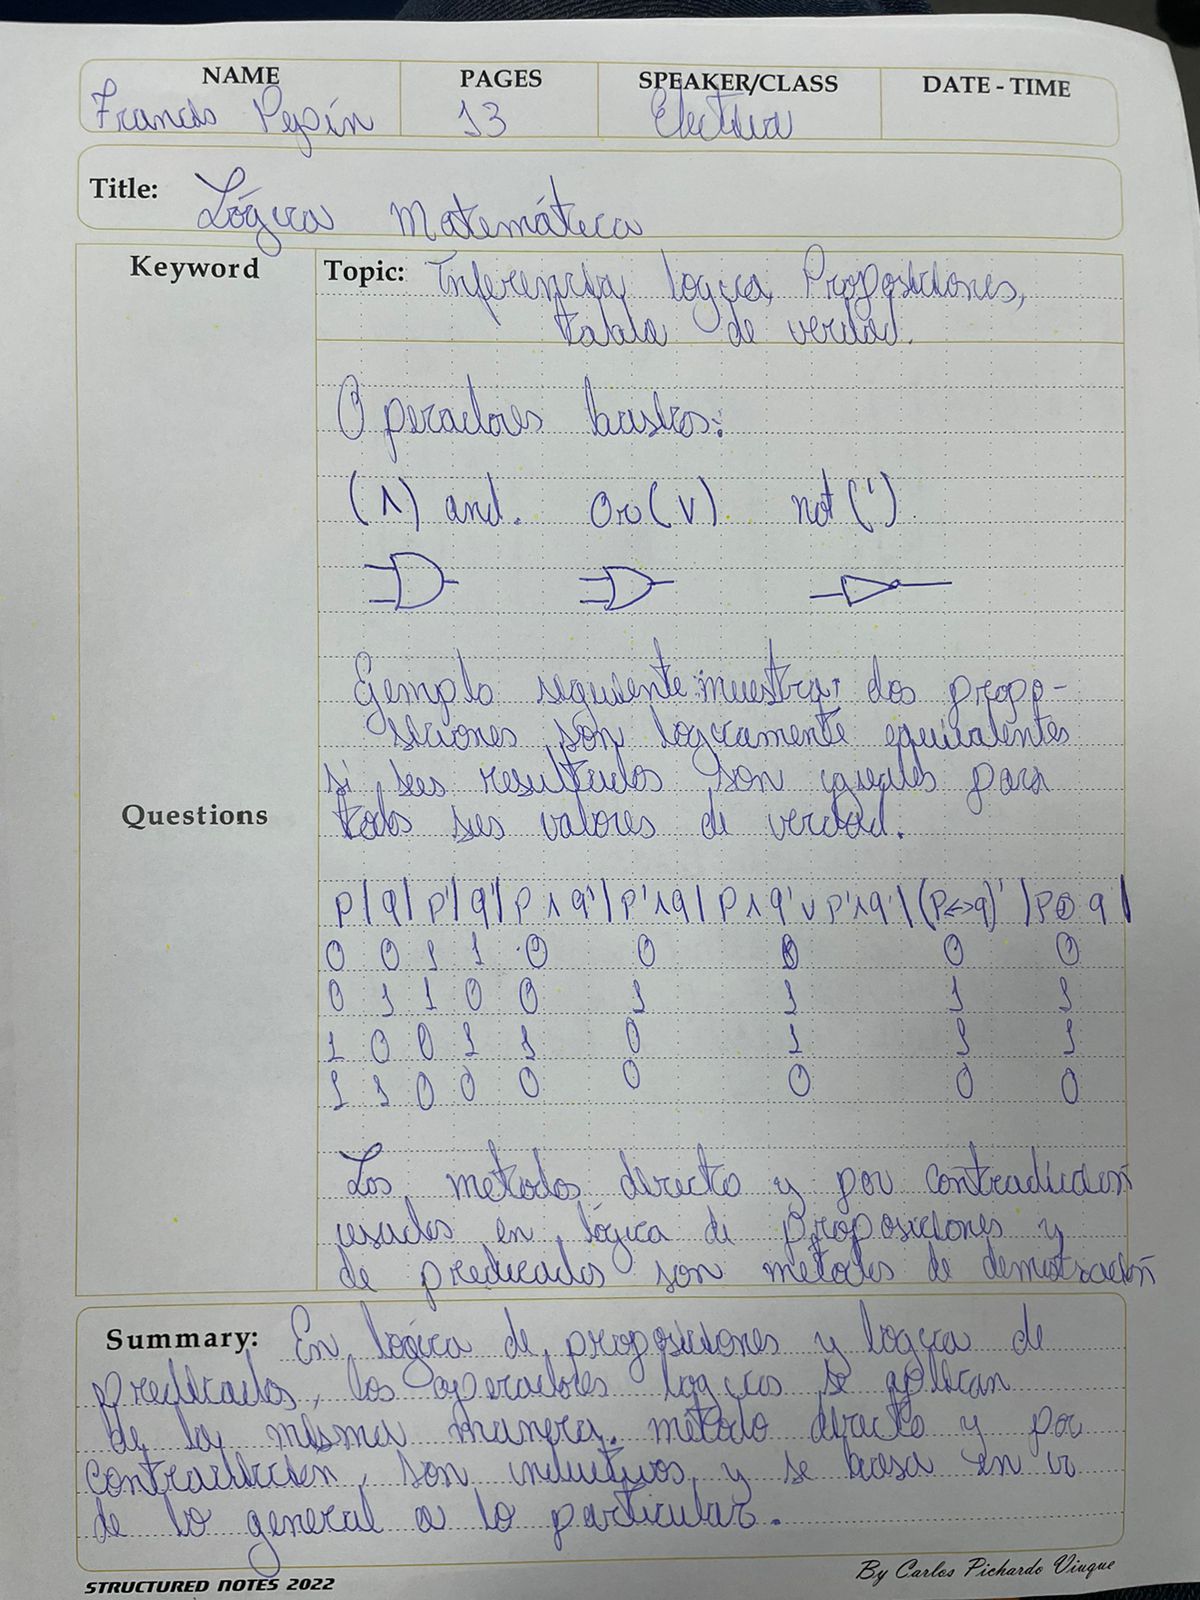 NAME PAGES SPEAKER/CLASS DATE - TIME
Francis Pepín 13 Electiva
Title: Lógica Matemática
Keyword
Topic: Inferencia lógica, Proposiciones,
tabla de verdad.
Operadores basicos:
(∧) and. Or (∨) not (')
Ejemplo seguiente muestra: dos propo-
siciones son logicamente equivalentes
si sus resultados son iguales para
todos sus valores de verdad.
Questions
p | q | p' | q' | p ∧ q' | p' ∧ q | p ∧ q' ∨ p' ∧ q | (p ↔ q)' | p ⊕ q |
0 0 1 1 0 0 0 0 0
0 1 1 0 0 1 1 1 1
1 0 0 1 1 0 1 1 1
1 1 0 0 0 0 0 0 0
Los metodos directo y por contradiccion
usados en lógica de proposiciones y
de predicados son metodos de demostración
Summary: En lógica de proposiciones y logica de
predicados, los operadores logicos se aplican
de la misma manera. método directo y por
contradicción, son inductivos, y se basa en ir
de lo general a lo particular.
STRUCTURED NOTES 2022
By Carlos Pichardo Viuque